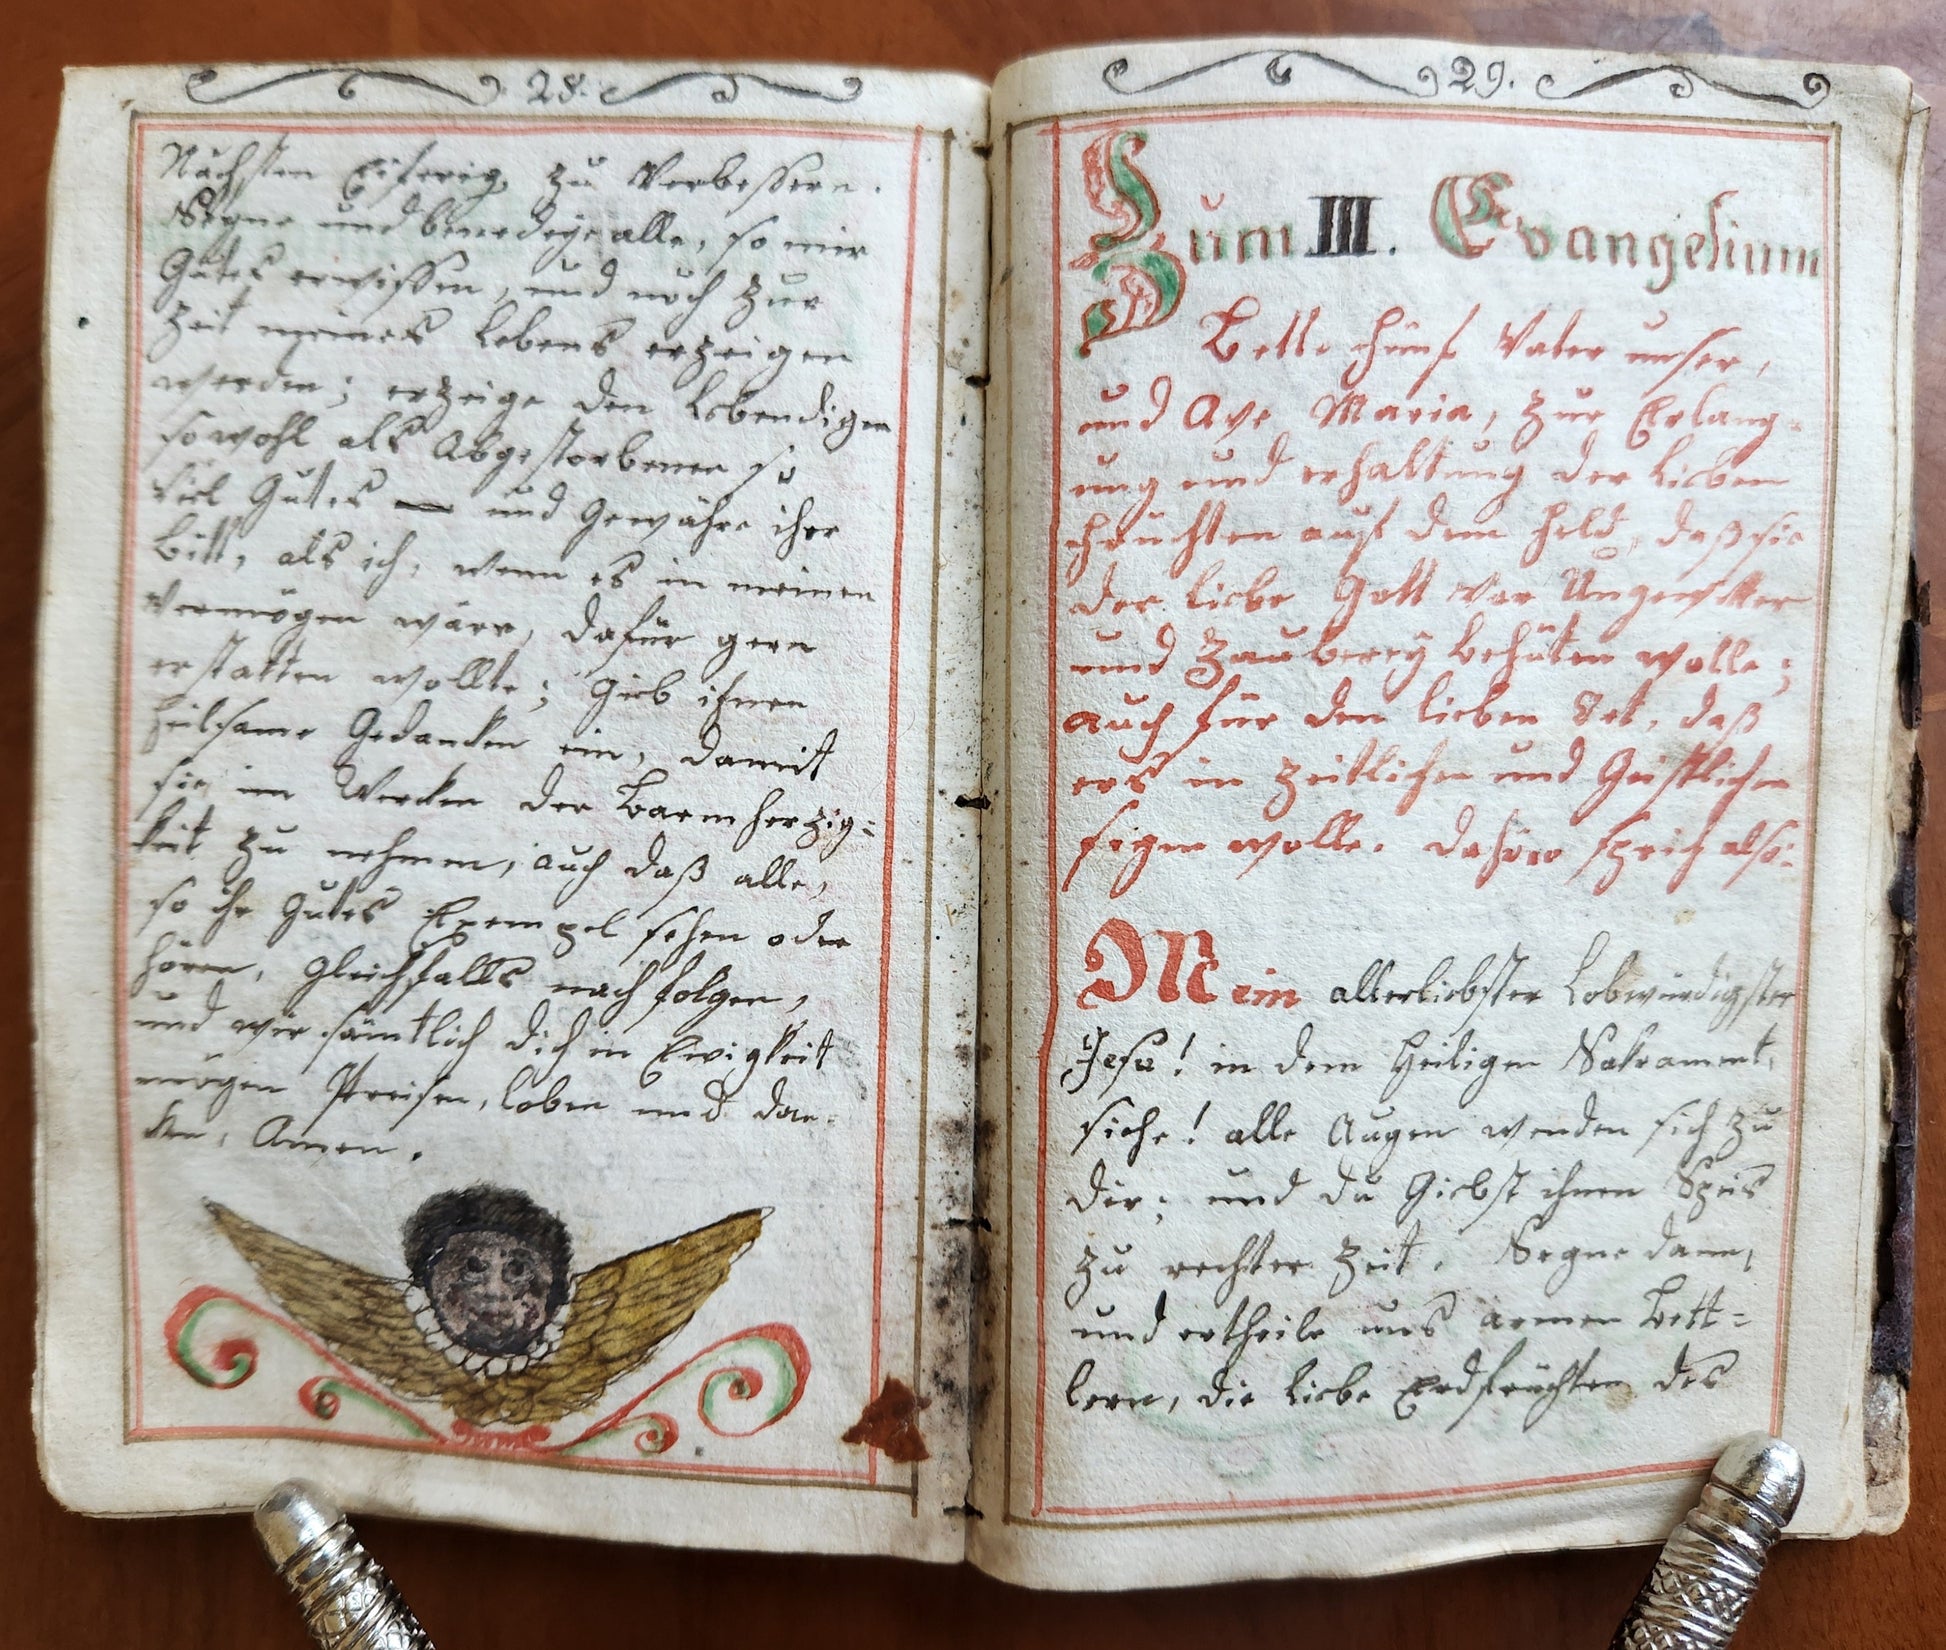 28.
Nächsten Eiferig zu Verbeßern.
Segne und benedeye alle, so mir
Gutes erwissen, und noch zur
Zeit meines Lebens erzeigen
werden; erzeige den Lebendigen
sowohl als Abgestorbenen so
viel Gutes und Gewähre ihrer
Bitt, als ich, wenn es in meinen
Vermögen wäre, dafür gern
erstatten wollte; Gieb ihnen
heilsame Gedanken ein, damit
sie im Werken der Barmherzig=
keit zu nehmen, auch daß alle,
so ihr Gutes Exempel sehen oder
hören, gleichfalls nachfolgen,
und wir sämtlich dich in Ewigkeit
mögen Preisen, loben und dan=
ken, Amen.
29.
Zum III. Evangelium
Bette fünf Vater unser,
und Ave Maria, zur Erlang=
ung und erhaltung der Lieben
früchten auf dem Feld, daß sie
der liebe Gott vor Ungewitter
und Zauberey behüten wolle;
auch für den lieben Ort, daß
ers in Zeitlichen und Geistlichen
segen wolle. sprich also:
Mein allerliebster Lobwürdigster
Jesu! in dem Heiligen Sakrament,
siehe! alle Augen wenden sich zu
dir; und du Giebst ihnen Speis
zu rechter Zeit. Segne dann,
und ertheile uns armen Bett=
lern, die liebe Erdfrüchten des